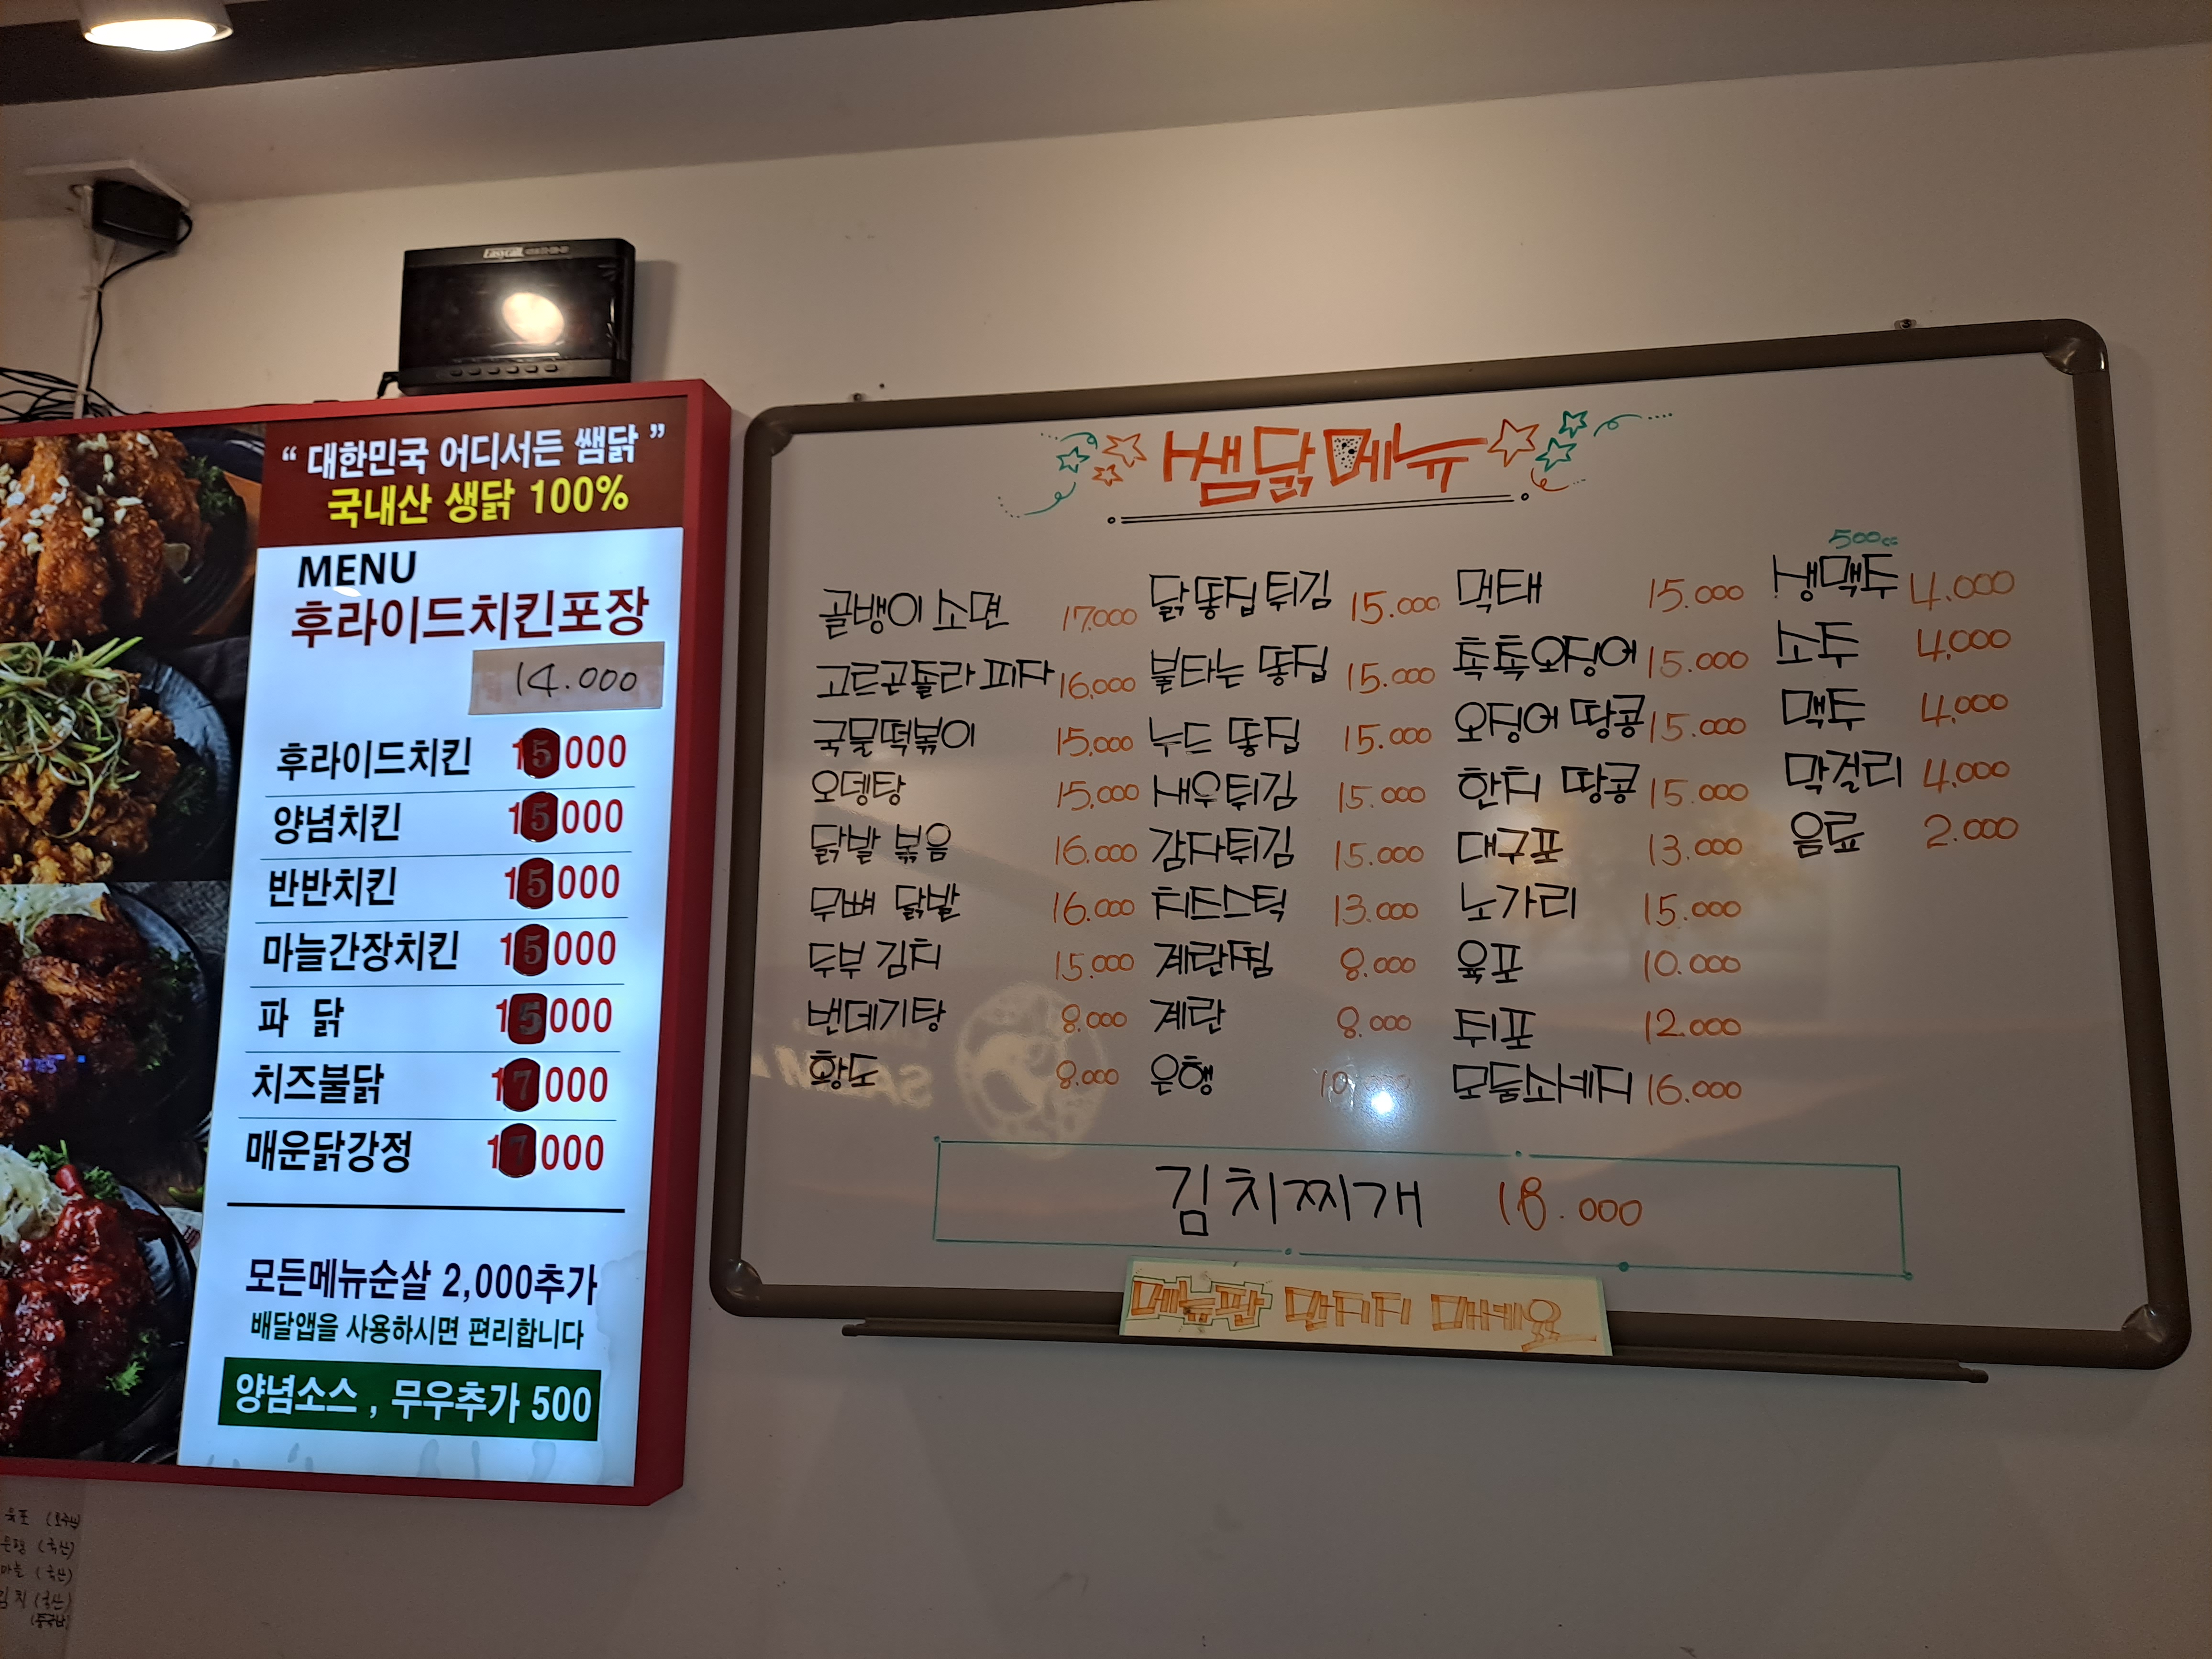 Easycall
“ 대한민국 어디서든 쌤닭 ”
국내산 생닭 100%
MENU
후라이드치킨포장
14.000
후라이드치킨 15000
양념치킨 15000
반반치킨 15000
마늘간장치킨 15000
파 닭 15000
치즈불닭 17000
매운닭강정 17000
모든메뉴순살 2,000추가
배달앱을 사용하시면 편리합니다
양념소스 , 무우추가 500
쌤닭메뉴
골뱅이 소면 17.000
고르곤졸라 피자 16,000
국물떡볶이 15,000
오뎅탕 15,000
닭발 볶음 16.000
무뼈 닭발 16.000
두부 김치 15.000
뻔데기탕 8.000
황도 8.000
닭똥집 튀김 15.000
불타는 똥집 15.000
누드 똥집 15.000
새우튀김 15.000
감자튀김 15.000
치즈스틱 13.000
계란찜 8.000
계란 8.000
은행
먹태 15.000
촉촉오징어 15.000
오징어 땅콩 15.000
한치 땅콩 15.000
대구포 13.000
노가리 15.000
육포 10.000
쥐포 12.000
모둠소세지 16.000
500cc
생맥주 4,000
소주 4,000
맥주 4,000
막걸리 4,000
음료 2.000
김치찌개 18.000
메뉴판 만지지 마세요
육포
(국산)
마늘 (국산)
(국산)
(중국산)